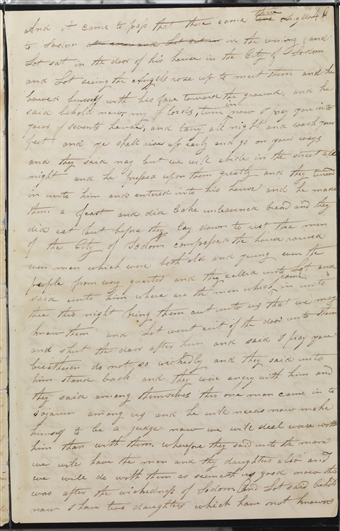 And it came to pass that there came three Angels
to Sodom in the evening and
Lot sat in the door of his house in the City of Sodom
and Lot seeing the Angels rose up to meet them and he
bowed himself with his face toward the ground, and he
said behold now my lords, turn in I pray you into
your servents house, and tarry all night and wash your
feet and ye shall rise up early and go on your ways
and they said nay but we will abide in the street all
night and he pressed upon them greatly and they turned
in unto him and entered into his house and he made
them a feast and did bake unleavened bread and they
did eat but before they lay down to rest the men
of the City of Sodom compased the house round
even men which were both old and young even the
people from every quarter and they called unto Lot and
said unto him where are the men which came in unto
thee this night bring them out unto us that we may
know them and Lot went out of the door unto them
and shut the door after him and said I pray you
bretheren do not so wickedly and they said unto
him stand back and they were angry with him and
they said among themselves this one man came in to
sojourn among us and he will needs now make
himself to be a judge now we will deal worse with
him than with them wherefore they said unto the man
we will have the men and thy daughters also and
we will do with them as seemeth us good now this
was after the wickedness of Sodom and Lot said behold
now I have two daughters which have not known